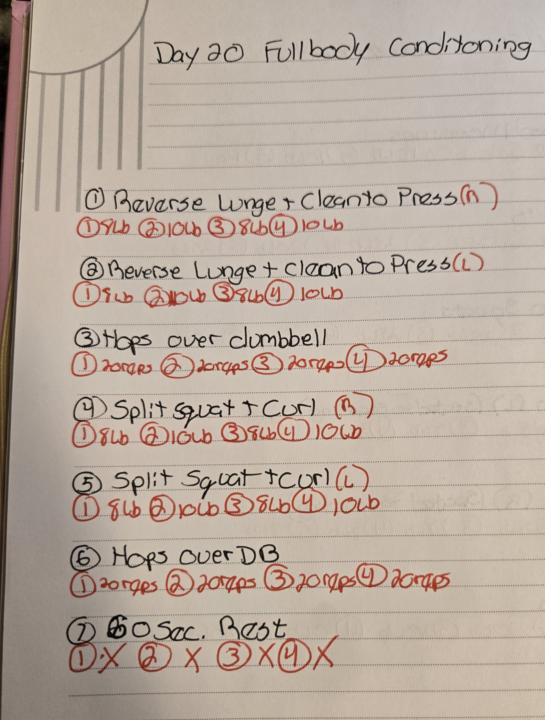 Day 20 Fullbody Conditoning
① Reverse Lunge + Clean to Press (R)
① 8Lb ② 10Lb ③ 8Lb ④ 10Lb
② Reverse Lunge + Clean to Press (L)
① 8Lb ② 10Lb ③ 8Lb ④ 10Lb
③ Hops over dumbbell
① 20reps ② 20reps ③ 20reps ④ 20reps
④ Split Squat + Curl (R)
① 8Lb ② 10Lb ③ 8Lb ④ 10Lb
⑤ Split Squat + Curl (L)
① 8Lb ② 10Lb ③ 8Lb ④ 10Lb
⑥ Hops over DB
① 20reps ② 20reps ③ 20reps ④ 20reps
⑦ 60 Sec. Rest
① X ② X ③ X ④ X